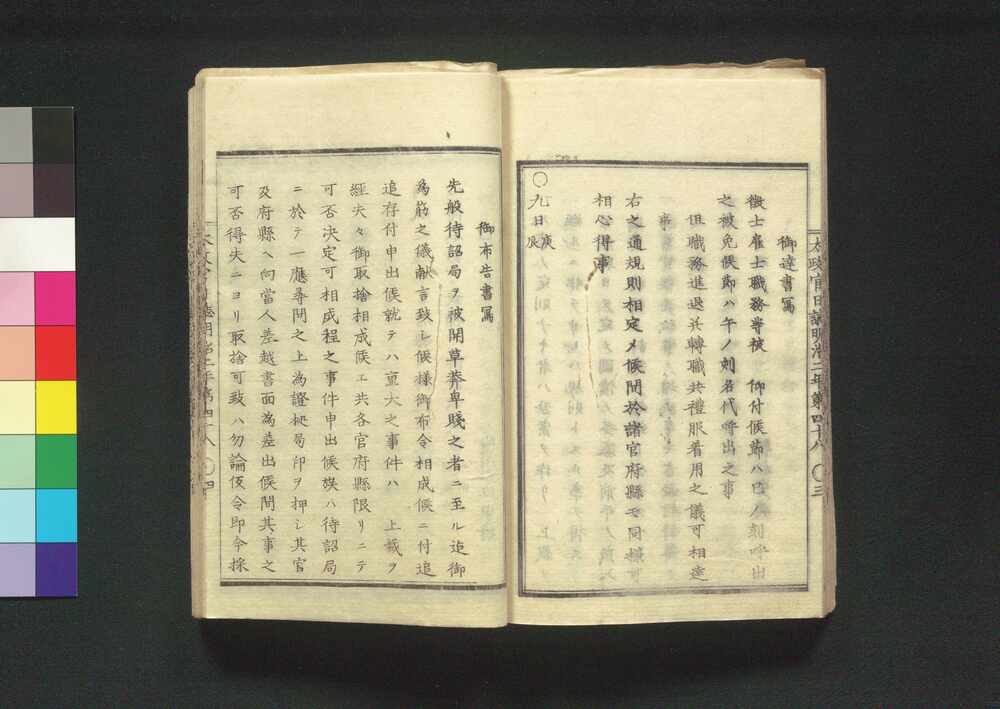 太政官日誌明治二年第四十八 〇三
御達書寫
徴士雇士職務等被 仰付候節ハ巳ノ刻呼出
之被免候節ハ午ノ刻名代呼出之事
但職務進退並轉職共禮服着用之儀可相達
事
右之通規則相定メ候間於諸官府縣モ同様可
相心得事
〇九日庚辰
御布告書寫
先般待詔局ヲ被開草莽卑賤之者ニ至ル迄御
為筋之儀献言致シ候様御布令相成候ニ付追
追存付申出候就テハ重大之事件ハ 上裁ヲ
經夫々御取捨相成候エ共各官府縣限リニテ
可否決定可相成程之事件申出候族ハ待詔局
ニ於テ一應尋問之上為證拠局印ヲ押シ其官
及府縣ヘ向當人差越書面為差出候間其事之
可否得失ニヨリ取捨可致ハ勿論仮令即今採
明治二年第四十八 〇四